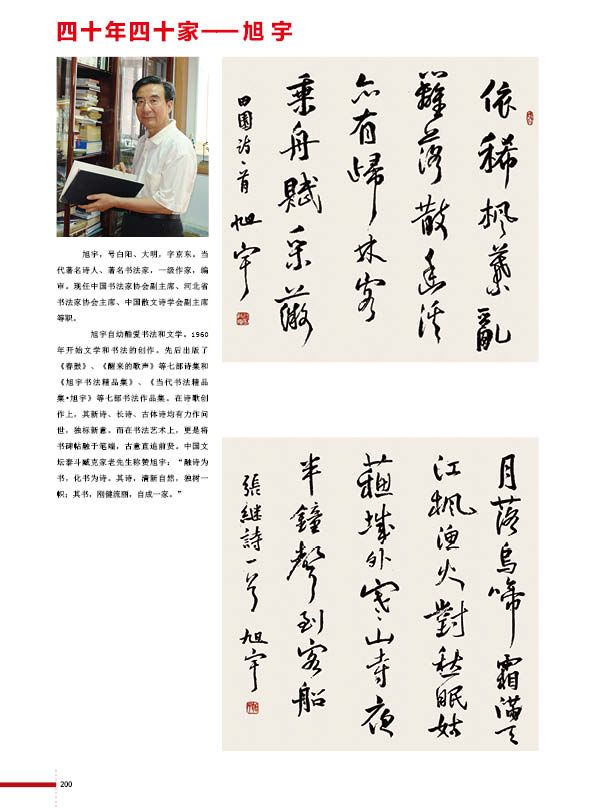 四十年四十家——旭 宇
旭宇，号白阳、大明，字京东。当
代著名诗人、著名书法家，一级作家，编
审。现任中国书法家协会副主席、河北省
书法家协会主席、中国散文诗学会副主席
等职。
旭宇自幼酷爱书法和文学。1960
年开始文学和书法的创作。先后出版了
《春鼓》、《醒来的歌声》等七部诗集和
《旭宇书法精品集》、《当代书法精品
集·旭宇》等七部书法作品集。在诗歌创
作上，其新诗、长诗、古体诗均有力作问
世，独标新意。而在书法艺术上，更是将
书碑帖融于笔端，古意直追前贤。中国文
坛泰斗臧克家老先生称赞旭宇：“融诗为
书，化书为诗。其诗，清新自然，独树一
帜；其书，刚健流丽，自成一家。”
依稀楓葉亂
籬落散幽溪
亦有歸林客
乘舟賦采薇
田園詩一首 旭宇
月落烏啼霜滿天
江楓漁火對愁眠姑
蘓城外寒山寺夜
半鐘聲到客船
張继詩一首 旭宇
200